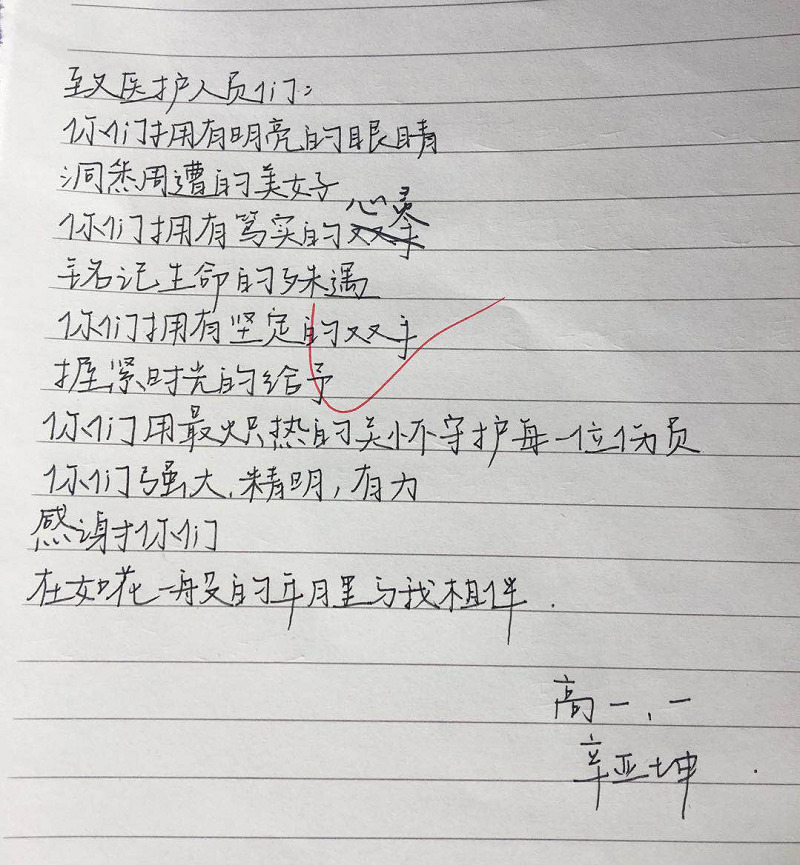 致医护人员们：
你们拥有明亮的眼睛
洞悉周遭的美好
你们拥有笃实的心灵
铭记生命的殊遇
你们拥有坚定的双手
握紧时光的给予
你们用最炽热的关怀守护每一位伤员
你们强大、精明，有力
感谢你们
在如花一般的年月里与我相伴.
高一、一
辛亚坤